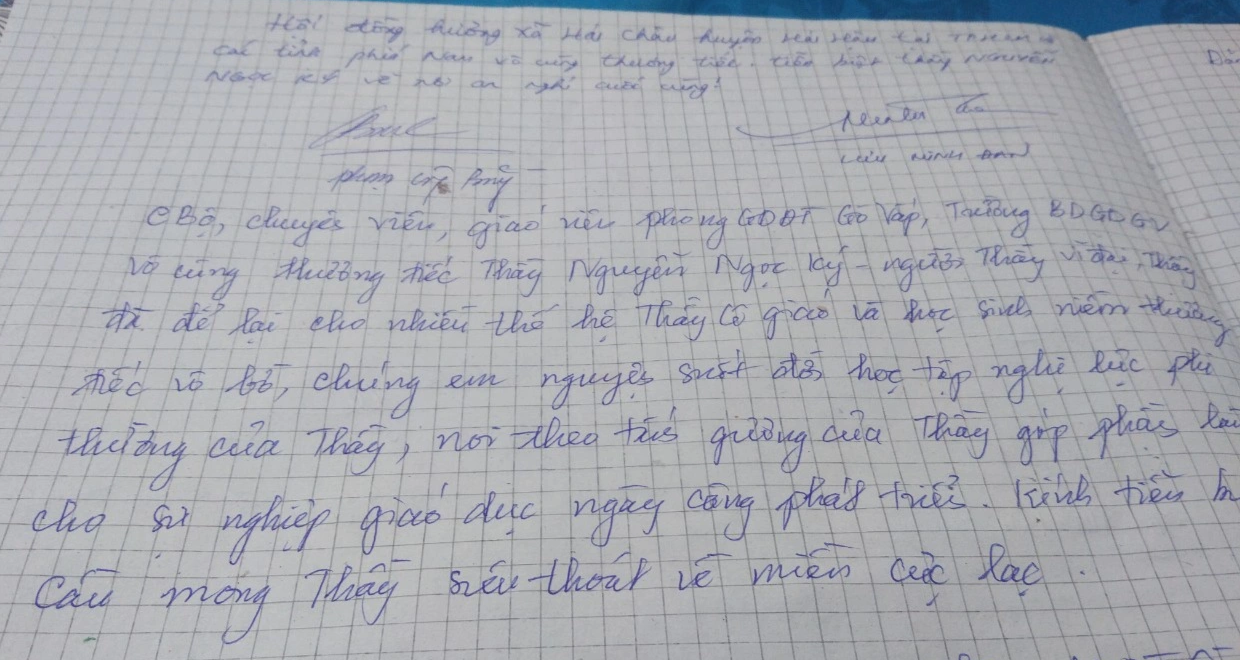 Hội đồng hương xã Hải Châu huyện Hải Hậu tại TPHCM và
các tỉnh phía Nam vô cùng thương tiếc tiễn biệt thầy Nguyễn
Ngọc Ký về nơi an nghỉ cuối cùng!
Phạm
CBộ, chuyên viên, giáo viên phòng GDĐT Gò Vấp, Trường BDGDGV
vô cùng thương tiếc Thầy Nguyễn Ngọc Ký - người Thầy vĩ đại, Thầy
đã để lại cho nhiều thế hệ Thầy Cô giáo và học sinh niềm thương
tiếc vô bờ, chúng em nguyện suốt đời học tập nghị lực phi
thường của Thầy, noi theo tấm gương của Thầy góp phần
cho sự nghiệp giáo dục ngày càng phát triển. Kính tiễn
Cầu mong Thầy siêu thoát về miền cực lạc.